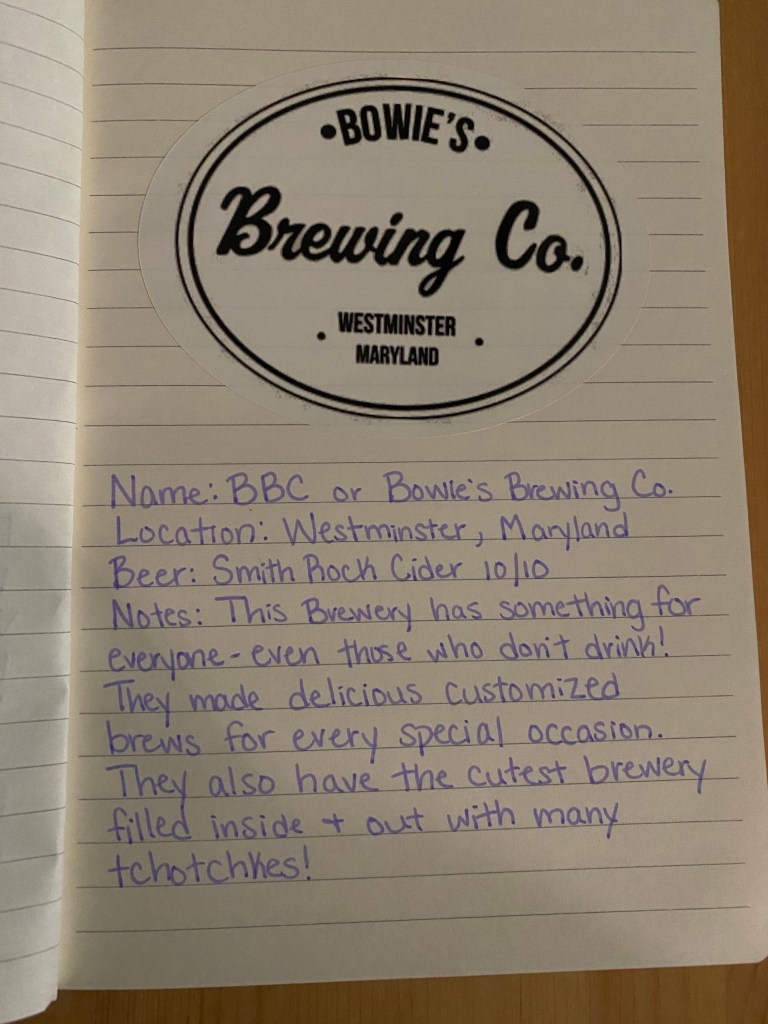 •BOWIE'S•
Brewing Co.
• WESTMINSTER •
MARYLAND
Name: BBC or Bowie's Brewing Co.
Location: Westminster, Maryland
Beer: Smith Rock Cider 10/10
Notes: This Brewery has something for
everyone - even those who don't drink!
They made delicious customized
brews for every special occasion.
They also have the cutest brewery
filled inside + out with many
tchotchkes!